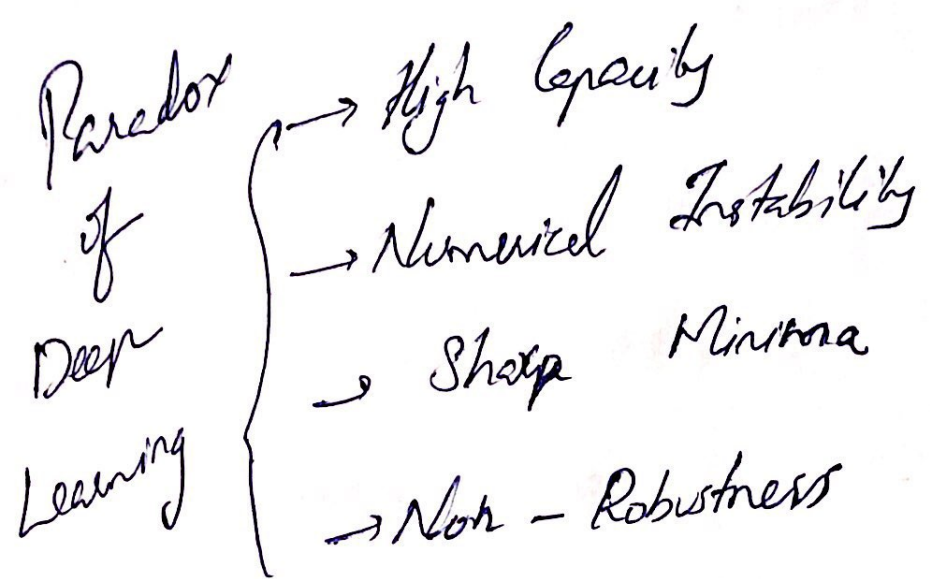 Paradox of Deep Learning
→ High Capacity
→ Numerical Instability
→ Sharp Minima
→ Non - Robustness